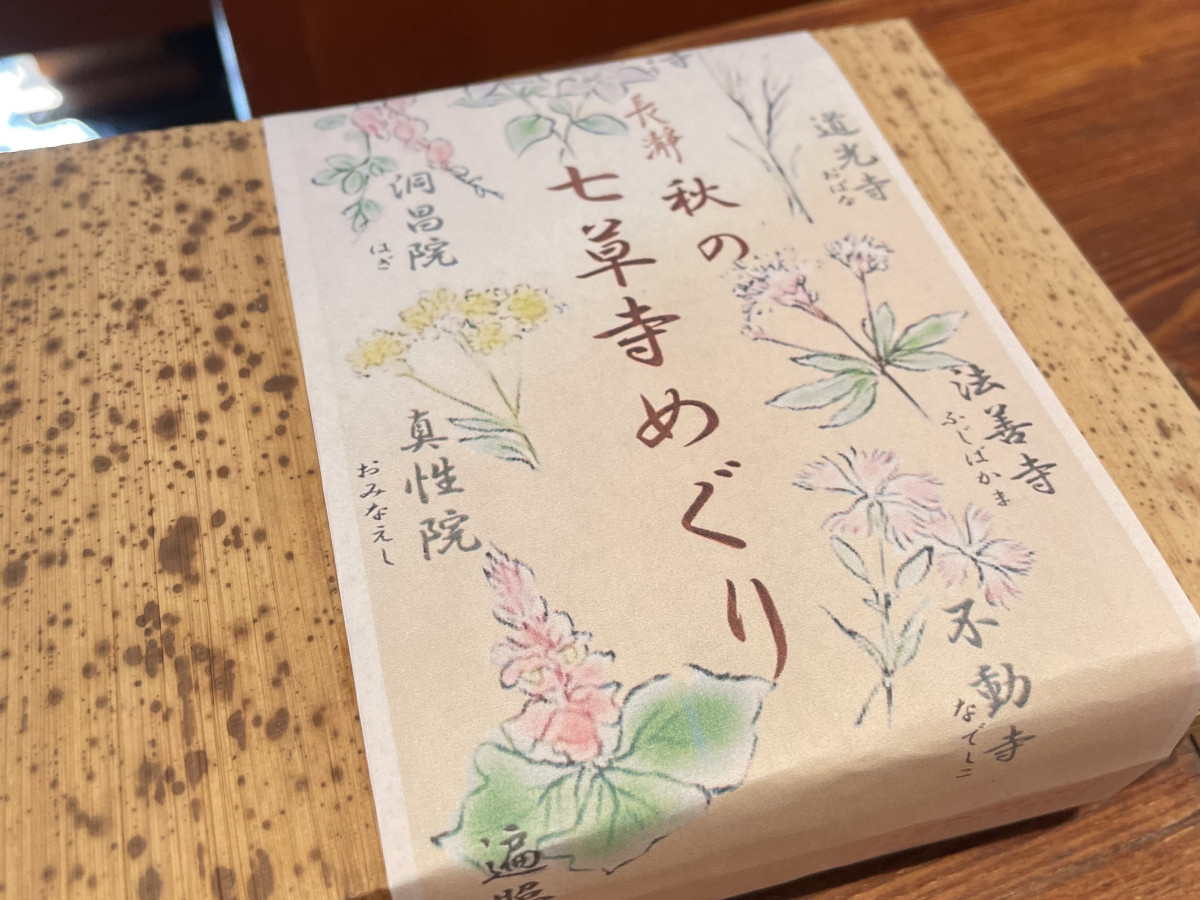 長瀞
秋の
七草寺めぐり
道光寺
おばな
法善寺
ふじばかま
不動寺
なでしこ
寺
洞昌院
はぎ
真性院
おみなえし
遍照